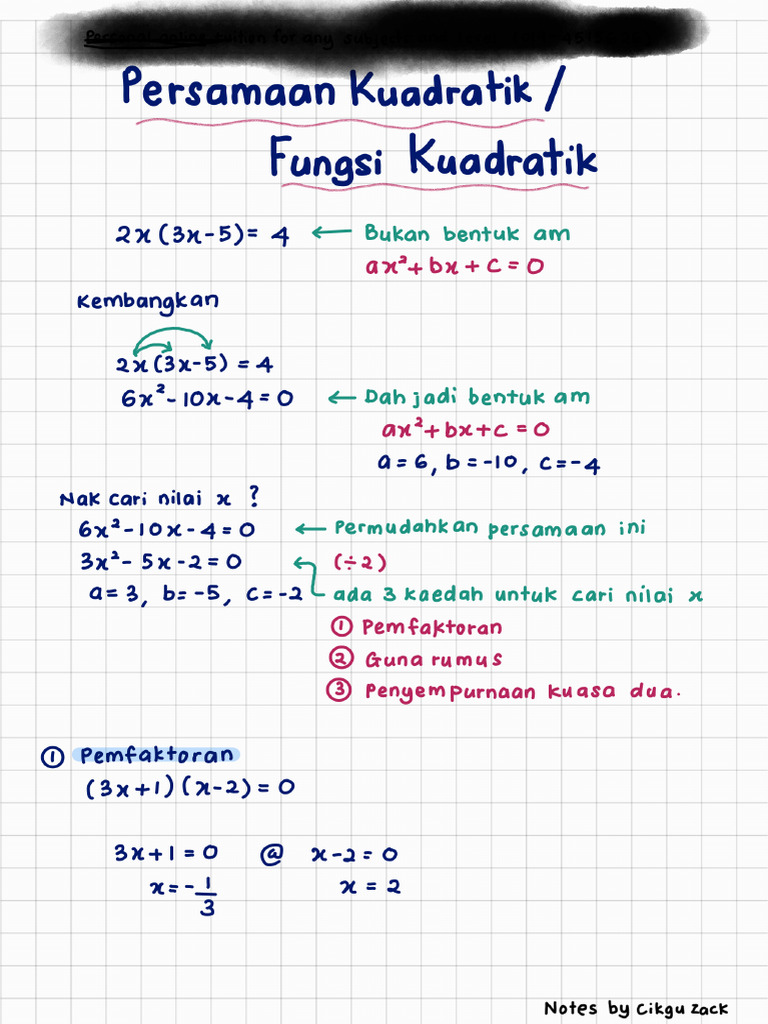 Personal online tuition for any subject
Persamaan Kuadratik /
Fungsi Kuadratik
2x(3x-5) = 4 ← Bukan bentuk am
ax² + bx + c = 0
Kembangkan
2x(3x-5) = 4
6x² - 10x - 4 = 0 ← Dah jadi bentuk am
ax² + bx + c = 0
a = 6, b = -10, c = -4
Nak cari nilai x ?
6x² - 10x - 4 = 0 ← Permudahkan persamaan ini
3x² - 5x - 2 = 0 (÷2)
a = 3, b = -5, c = -2 ada 3 kaedah untuk cari nilai x
① Pemfaktoran
② Guna rumus
③ Penyempurnaan kuasa dua.
① Pemfaktoran
(3x+1)(x-2) = 0
3x + 1 = 0 @ x - 2 = 0
x = -1/3 x = 2
Notes by Cikgu Zack